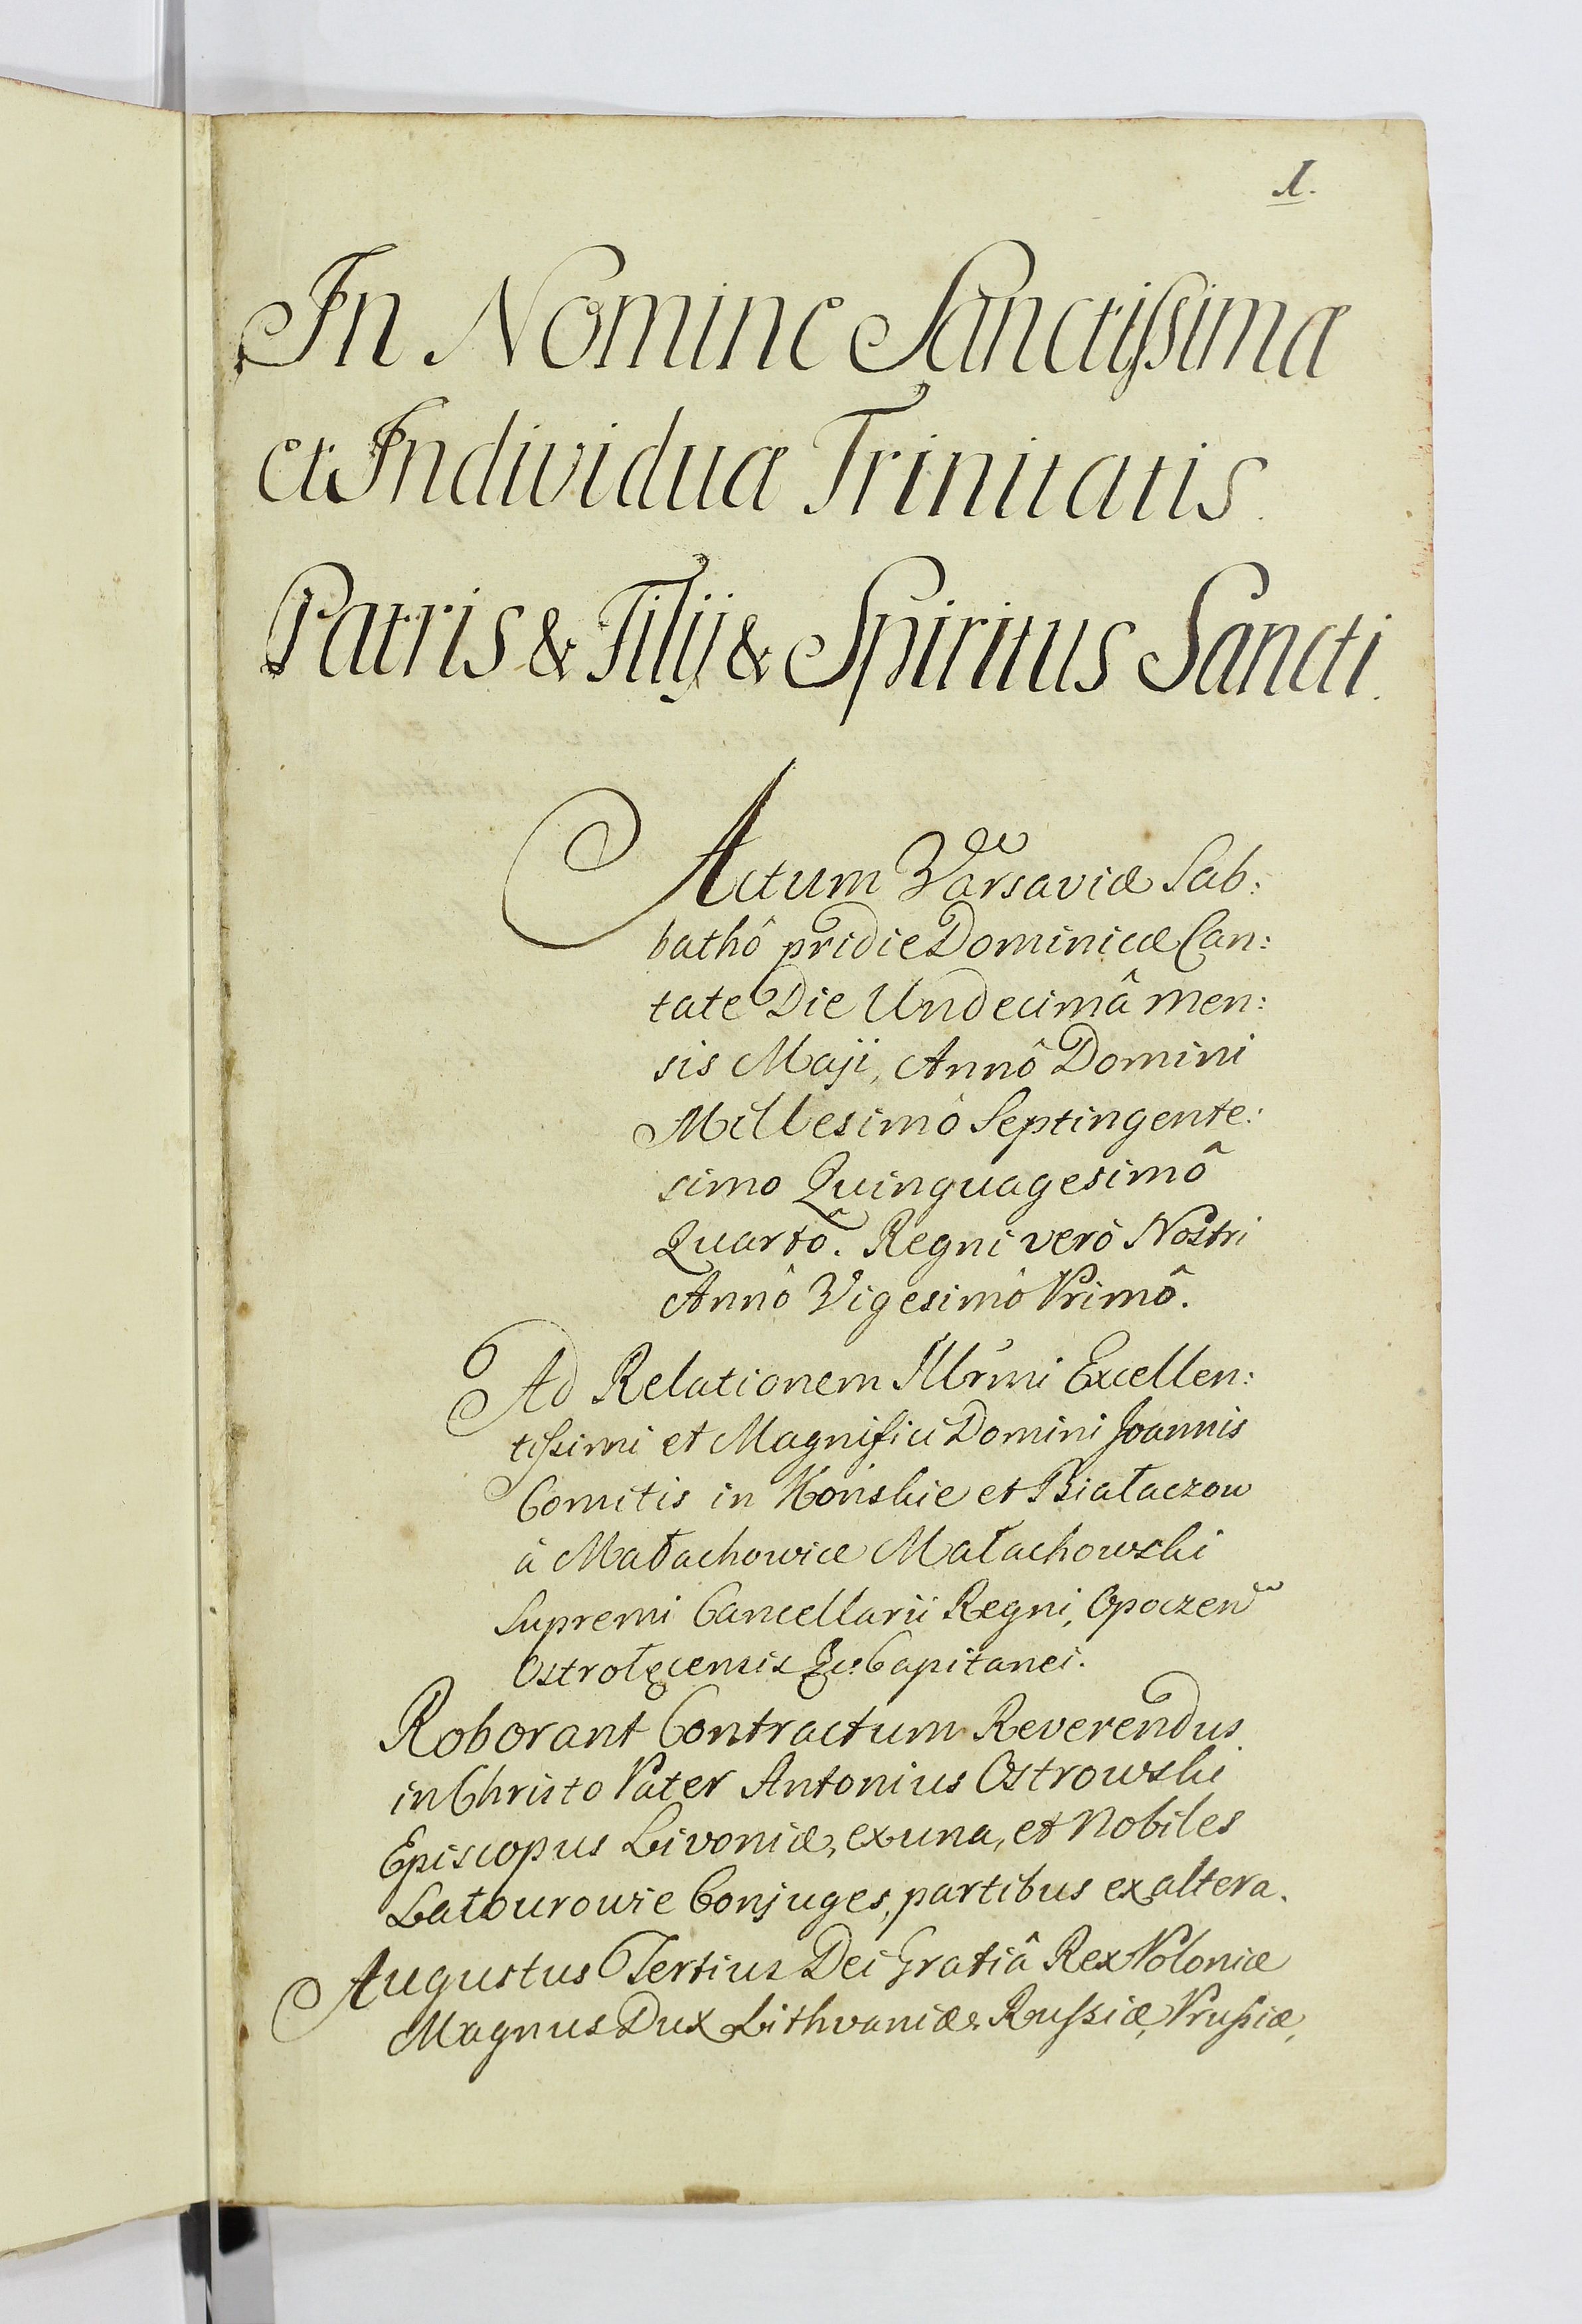 1.
In Nomine Sanctissimæ
et Individuæ Trinitatis.
Patris & Filij & Spiritus Sancti.
Actum Varsaviæ Sab:
bathô pridie Dominicæ Can:
tate Die Undecimâ men:
sis Maji, Annô Domini
Millesimô Septingente:
simo Quinquagesimô
Quartô. Regni verò Nostri
Annô Vigesimô Primô.
Ad Relationem Illrmi Excellen:
tissimi et Magnifici Domini Joannis
Comitis in Końskie et Białaczow
à Małachowice Małachowski
Supremi Cancellarii Regni, Opoczen
Ostrołęcensis &c. Capitanei.
Roborant Contractum Reverendus
in Christo Pater Antonius Ostrowski
Episcopus Livoniæ, ex una, et Nobiles
Latourowie Conjuges, partibus ex altera.
Augustus Tertius Dei Gratiâ Rex Poloniæ
Magnus Dux Lithvaniæ Russiæ, Prussiæ,